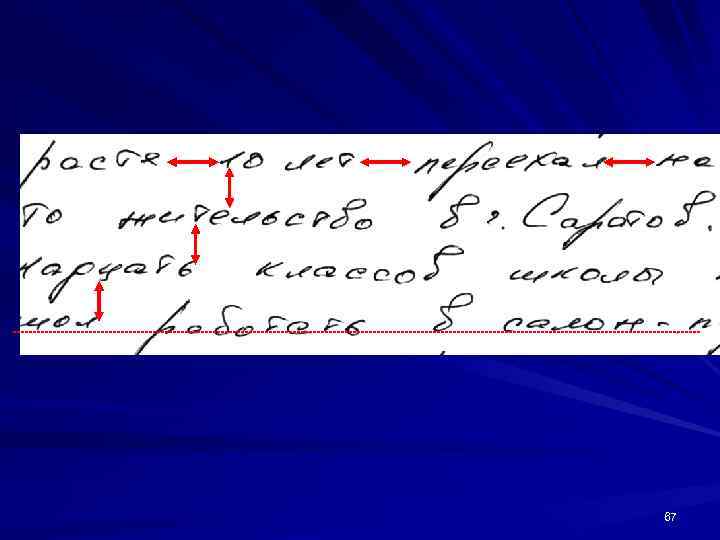 расте 10 лет переехал на
то жительство в г. Саратов.
надцать классов школы
шол работать в салон-п
67